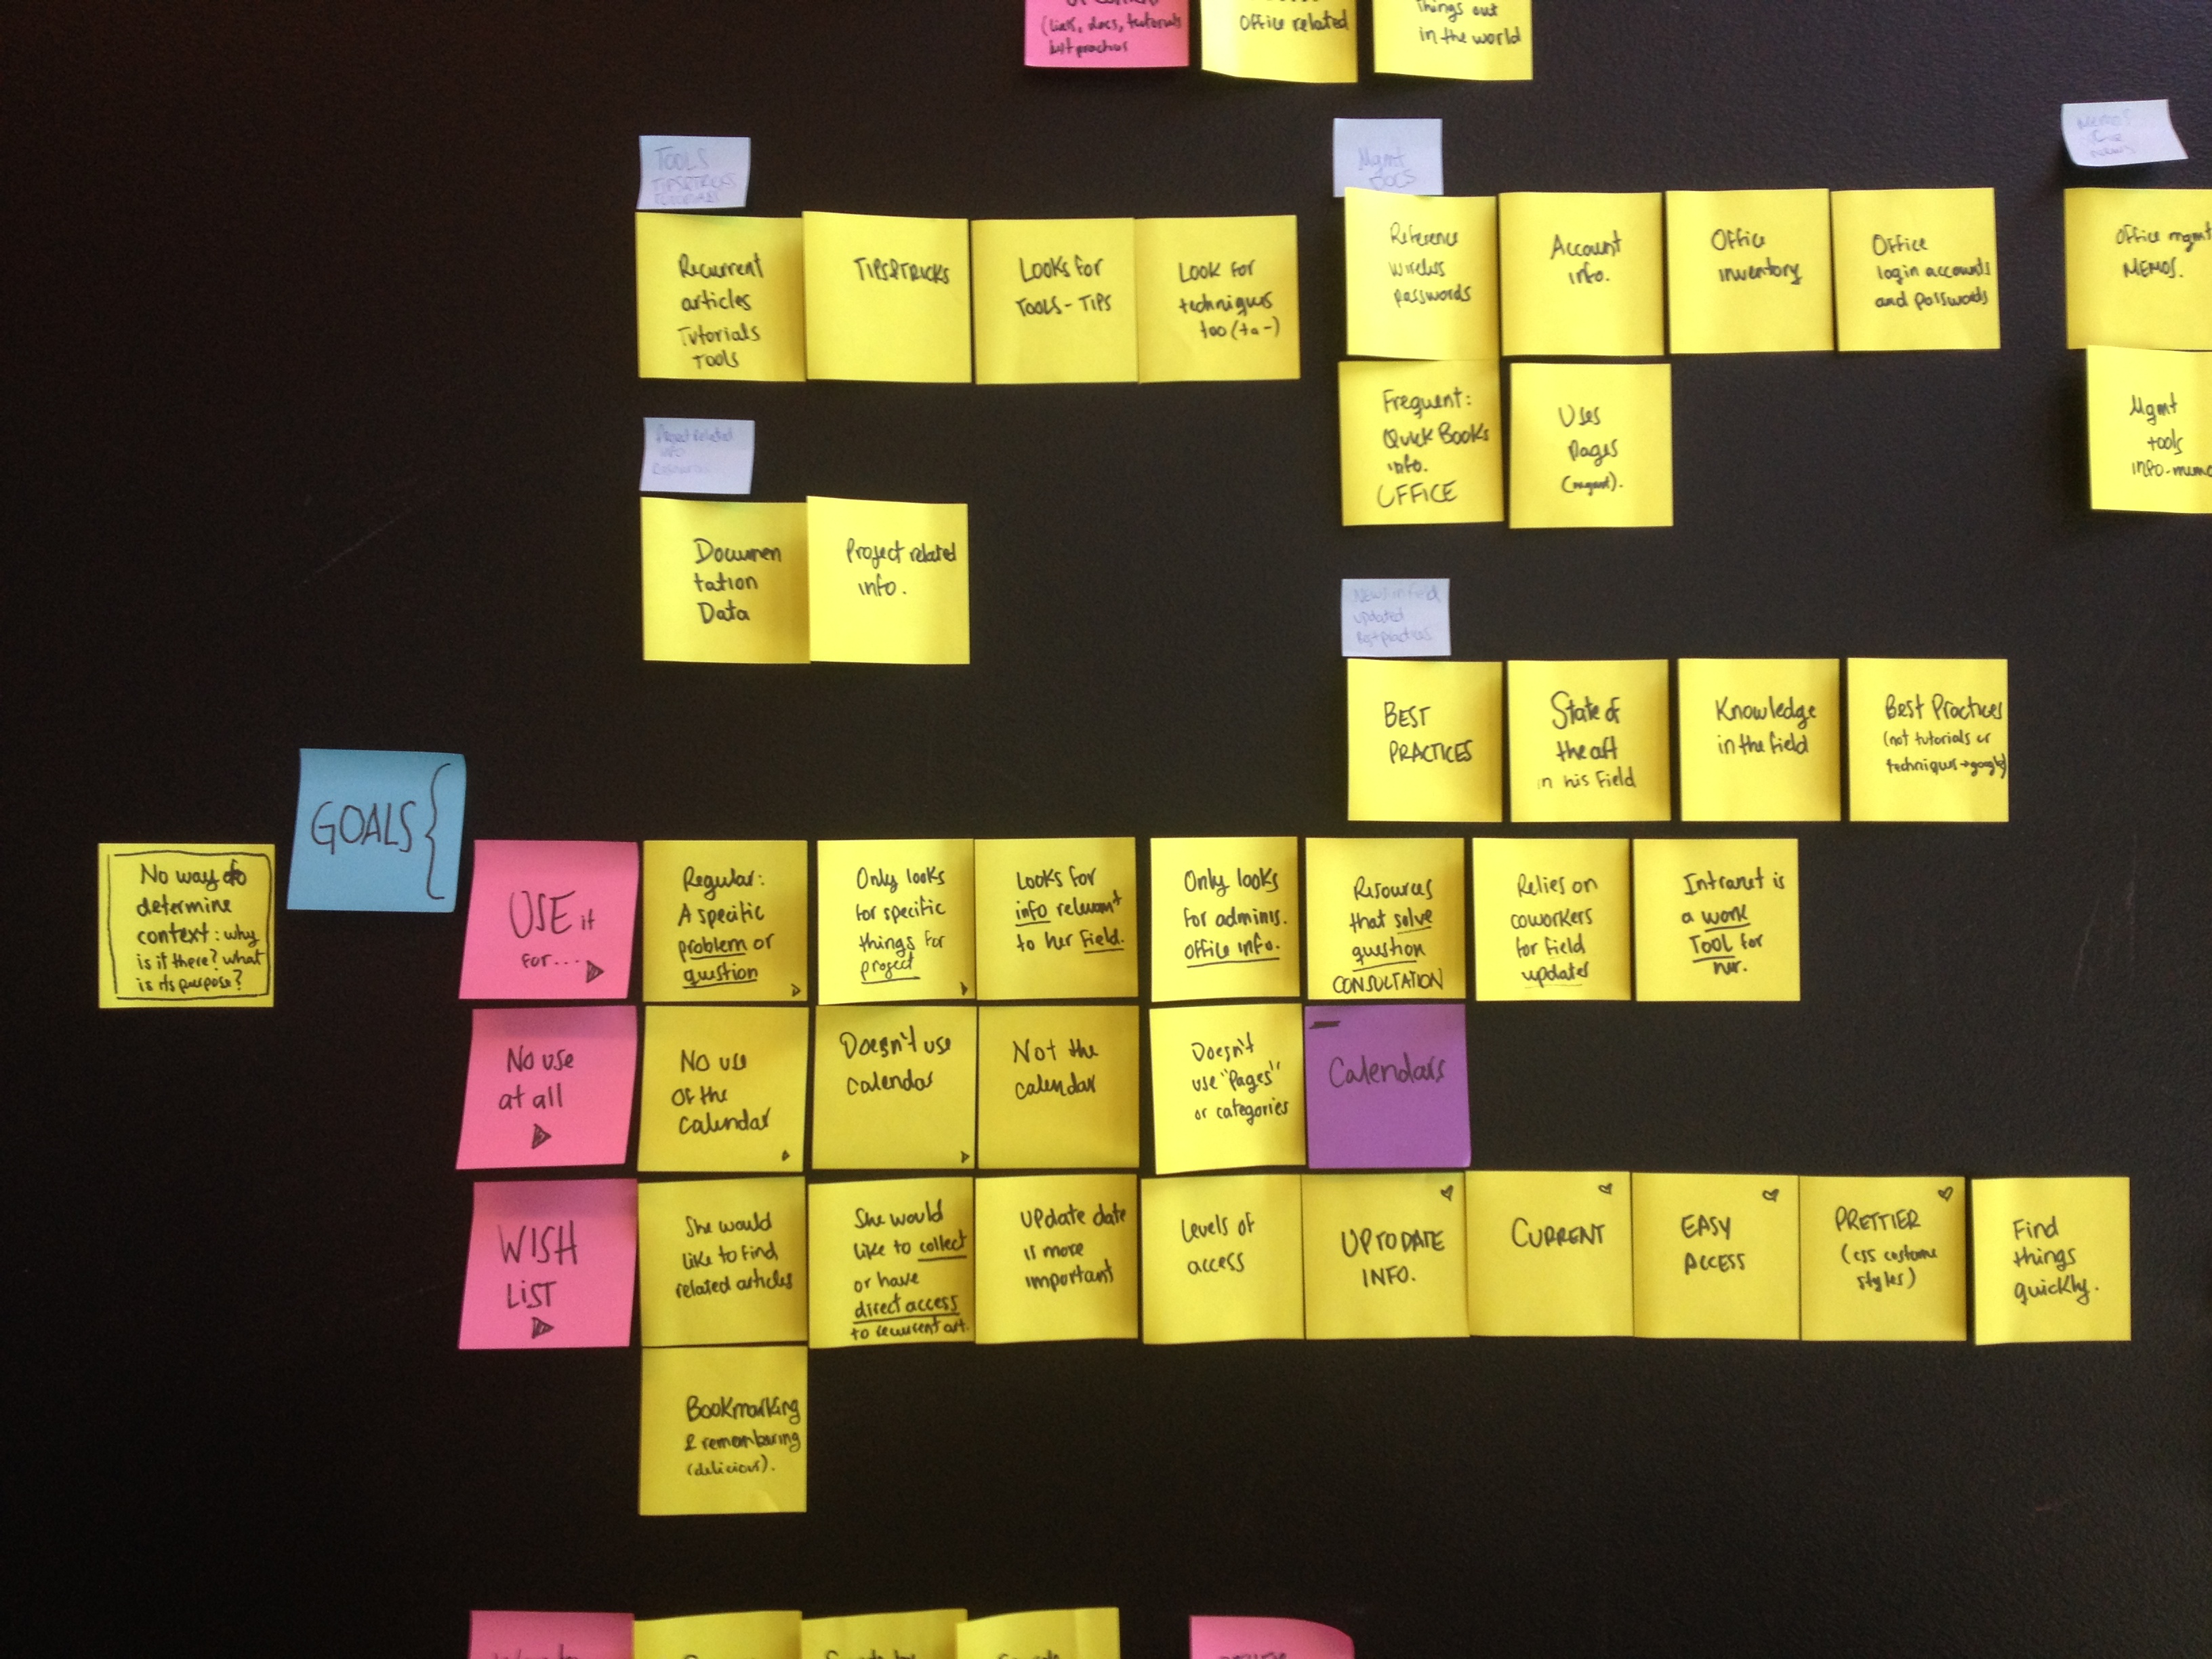 (links, docs, tutorials
best practices
Office related
things out
in the world
TOOLS
TIPS&TRICKS
TUTORIALS
Recurrent
articles
Tutorials
Tools
TIPS&TRICKS
Looks for
TOOLS - TIPS
Look for
techniques
too (ta-)
Mgmt
DOCS
Reference
wireless
passwords
Account
info.
Office
inventory
Office
login accounts
and passwords
Frequent:
QuickBooks
info.
OFFICE
Uses
Pages
(mgmt).
MEMOS
news
Office mgmt
MEMOS.
Mgmt
tools
info-memo
Project related
info
Resources
Documen
tation
Data
Project related
info.
NEWS in field
updated
Best practices
BEST
PRACTICES
State of
the art
in his field
Knowledge
in the field
Best Practices
(not tutorials or
techniques→google)
GOALS {
No way to
determine
context: why
is it there? what
is its purpose?
USE it
FOR...
Regular:
A specific
problem or
question
Only looks
for specific
things for
project
Looks for
info relevant
to her field.
Only looks
for adminis.
office info.
Resources
that solve
question
CONSULTATION
Relies on
coworkers
for field
updates
Intranet is
a work
TOOL for
her.
No use
at all
No use
of the
calendar
Doesn't use
calendar
Not the
calendar
Doesn't
use "Pages"
or categories
Calendars
WISH
LIST
She would
like to find
related articles
She would
like to collect
or have
direct access
to recurrent art.
Update date
is more
important
Levels of
access
UP TO DATE
INFO.
CURRENT
EASY
ACCESS
PRETTIER
(css costume
styles)
Find
things
quickly.
Bookmarking
& remembering
(delicious).